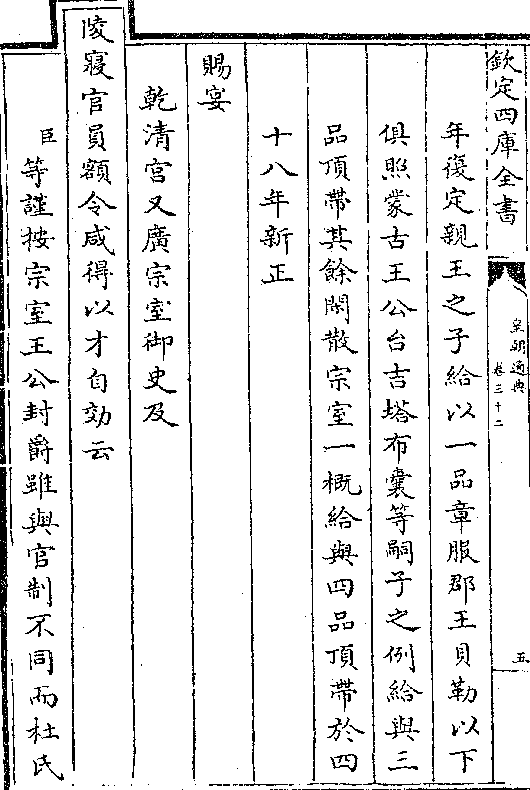 欽定四庫全書
皇朝通典
卷三十二
五
年復定親王之子給以一品章服郡王貝勒以下
俱照蒙古王公台吉塔布囊等嗣子之例給與三
品頂帶其餘閑散宗室一概給與四品頂帶於四
十八年新正
賜宴
乾清宮又廣宗室御史及
陵寢官員額令咸得以才自効云
臣等謹按宗室王公封爵雖與官制不同而杜氏